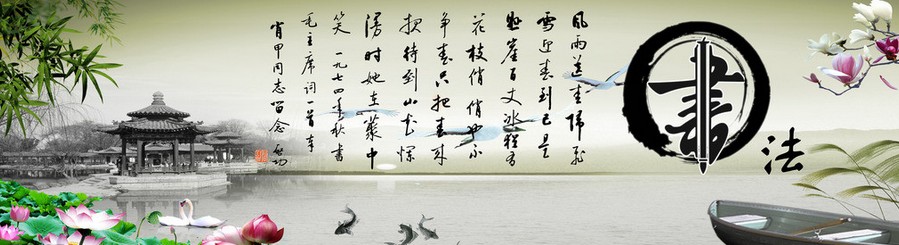 書法
風雨送春歸飛
雪迎春到已是
懸崖百丈冰猶有
花枝俏俏也不
爭春只把春来
报待到山花爛
漫时她在叢中
笑 一九七四年秋書
毛主席词一首 奉
肖甲同志留念 启功